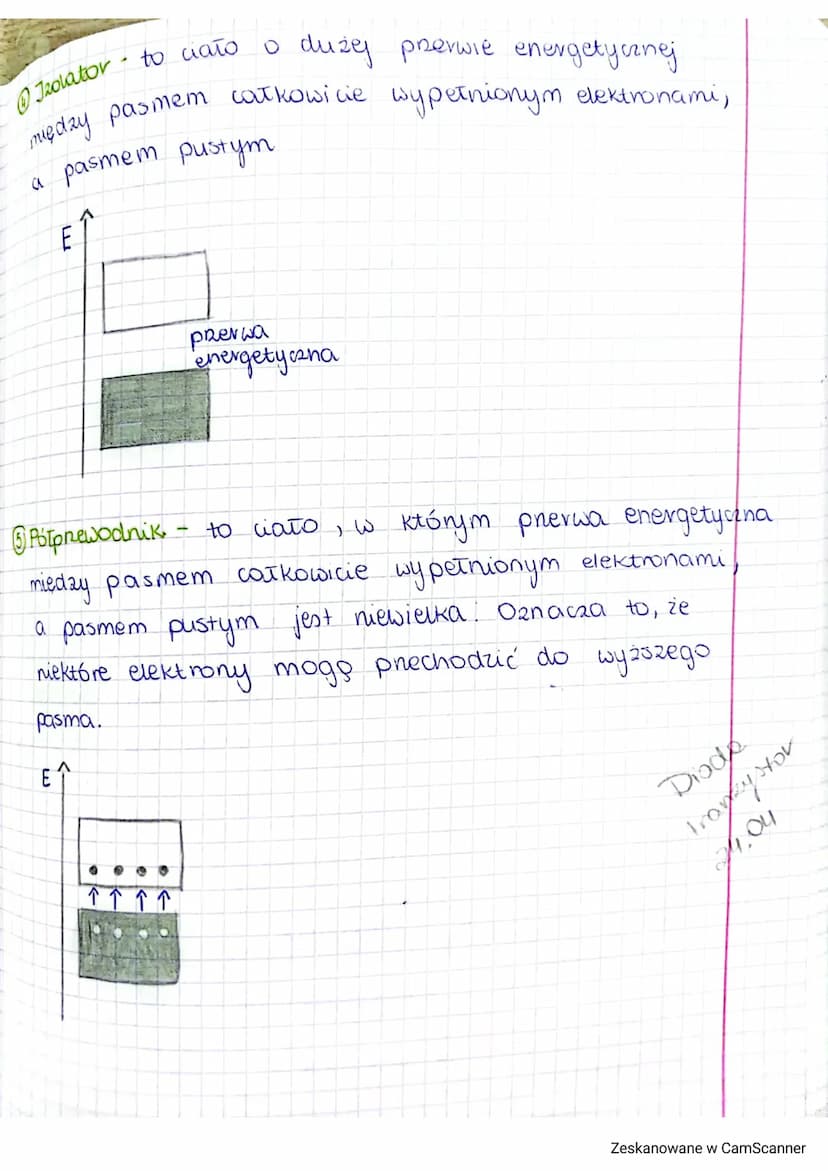 ④ Izolator - to ciało o dużej przerwie energetycznej
między pasmem całkowicie wypełnionym elektronami,
a pasmem pustym
E
przerwa
energetyczna
⑤ Półprzewodnik - to ciało, w którym przerwa energetyczna
między pasmem całkowicie wypełnionym elektronami,
a pasmem pustym jest niewielka. Oznacza to, że
niektóre elektrony mogą przechodzić do wyższego
pasma.
E
Dioda
tranzystor
24.04
Zeskanowane w CamScanner